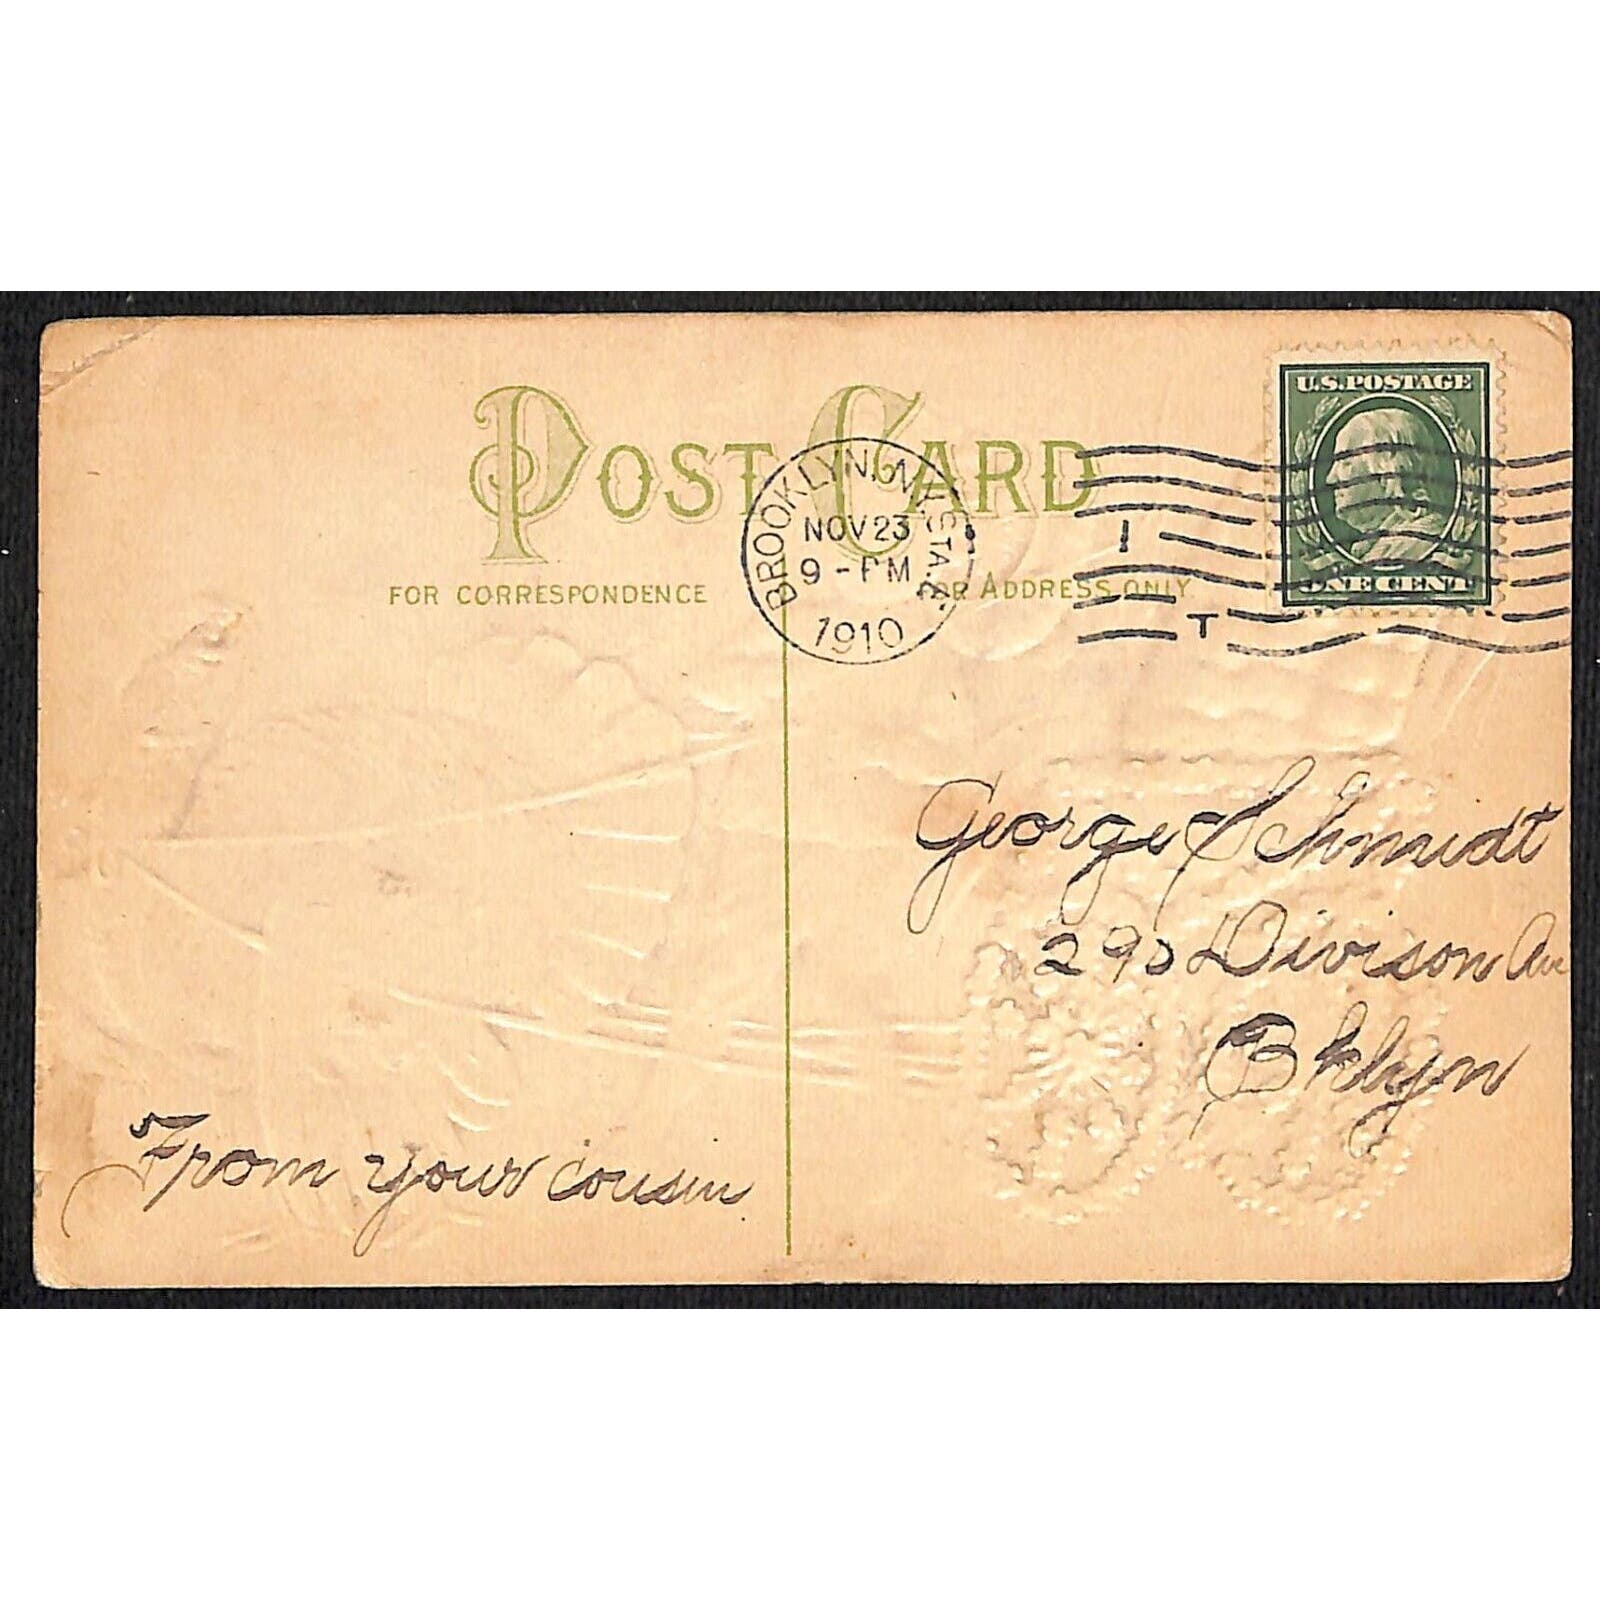 POST CARD
FOR CORRESPONDENCE
FOR ADDRESS ONLY
BROOKLYN, N.Y. STA.
NOV 23
9 - PM
1910
1
T
U.S. POSTAGE
ONE CENT
George Schmidt
290 Divison Av
Bklyn
From your cousin